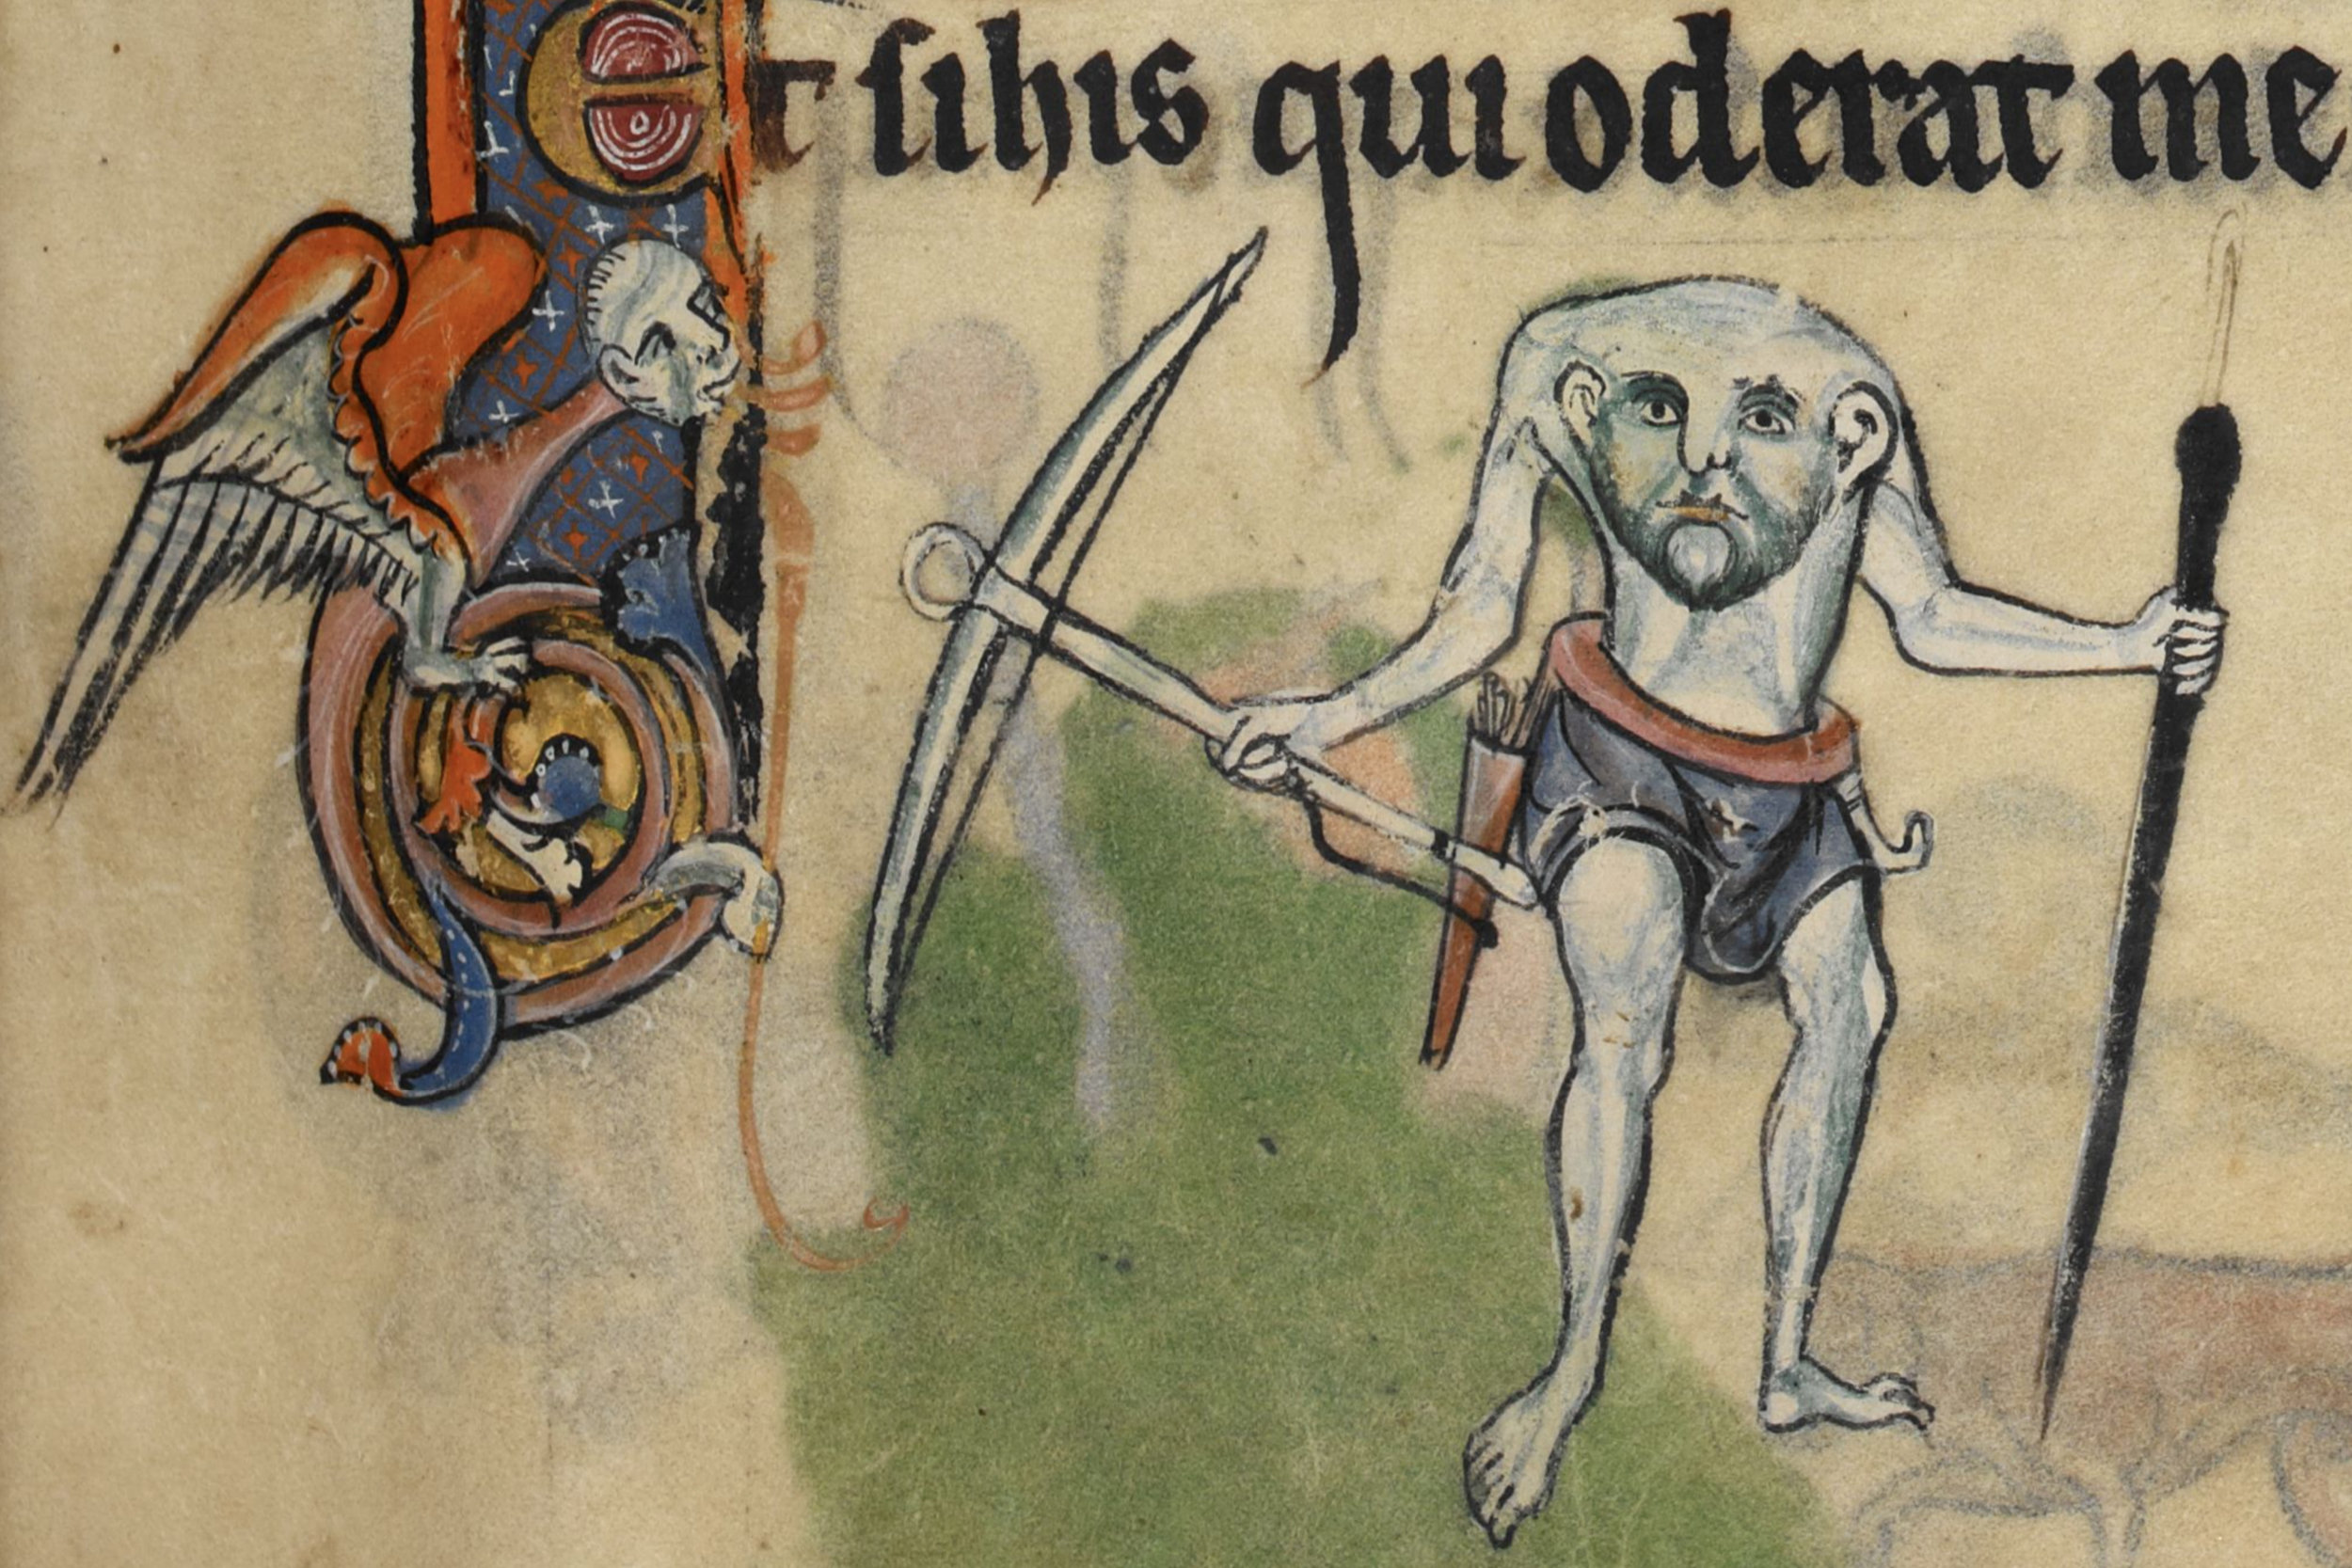 Et si his qui oderat me